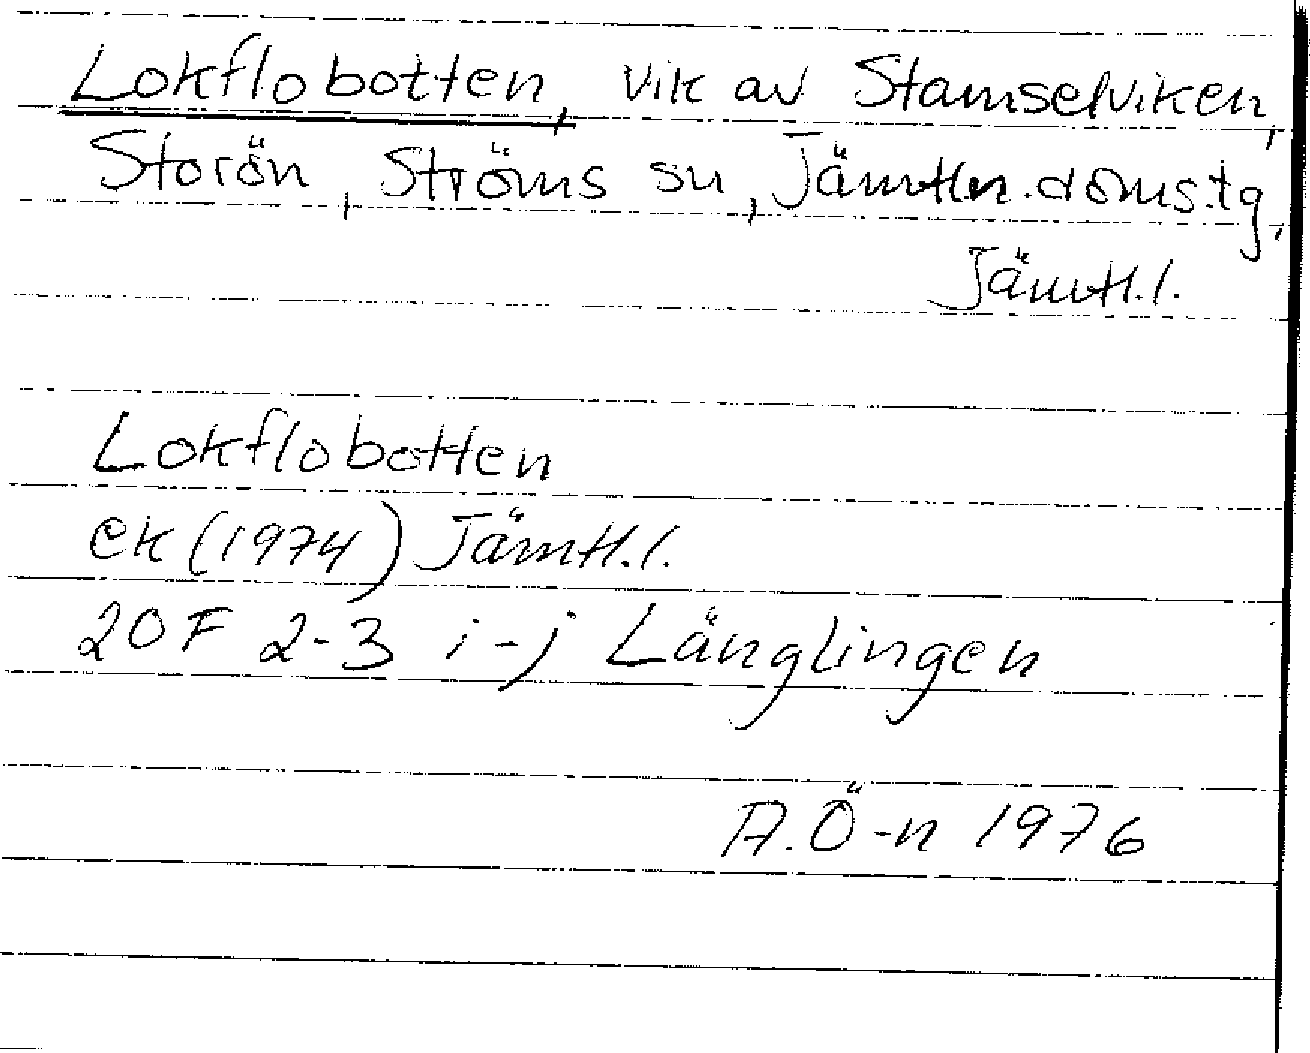 Lokflobotten, vik av Stamselviken,
Storön, Ströms sn, Jämtln. doms.tg,
Jämtl.l.
Lokflobotten
ek (1974) Jämtl.l.
20F 2-3 i-j Länglingen
A.Ö-n 1976